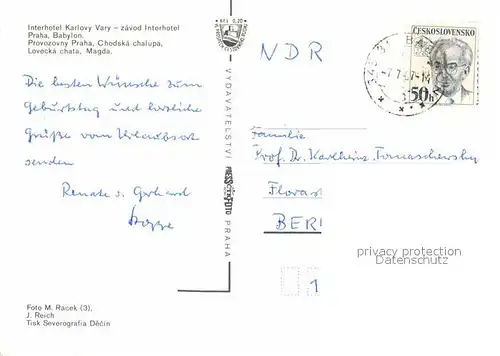 Interhotel Karlovy Vary – závod Interhotel
Praha, Babylon.
Provozovny Praha, Chodská chalupa,
Lovecká chata, Magda.
Kčs 0,20
ČESKOSLOVENSKO
50h
NDR
Die besten Wünsche zum
Geburtstag und herzliche
Grüße vom Urlaubsort
senden
Renate u. Gerhard
Hoppe
VYDAVATELSTVÍ PRESSFOTO PRAHA
Familie
Prof. Dr. Karlheinz Tomaschewsky
Floras
BERl
1
privacy protection
Datenschutz
Foto M. Racek (3),
J. Reich
Tisk Severografia Děčín